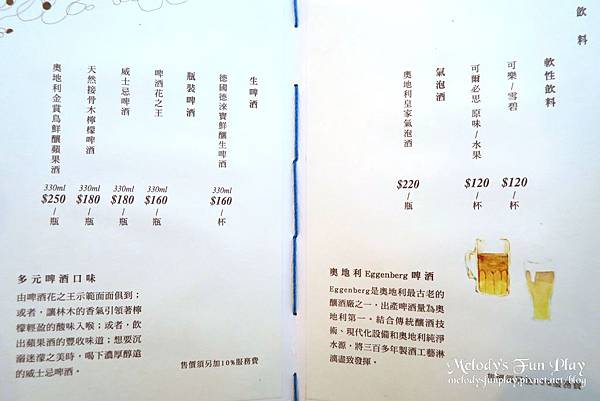 飲料
軟性飲料
可樂/雪碧
$120/杯
可爾必思 原味/水果
$120/杯
氣泡酒
奧地利皇家氣泡酒
$220/瓶
奧地利Eggenberg啤酒
Eggenberg是奧地利最古老的
釀酒廠之一，出產啤酒量為奧
地利第一。結合傳統釀酒技
術、現代化設備和奧地利純淨
水源，將三百多年製酒工藝淋
漓盡致發揮。
生啤酒
德國德淶寶鮮釀生啤酒
330ml
$160/杯
瓶裝啤酒
啤酒花之王
330ml
$160/瓶
威士忌啤酒
330ml
$180/瓶
天然接骨木檸檬啤酒
330ml
$180/瓶
奧地利金賞鳥鮮釀蘋果酒
330ml
$250/瓶
多元啤酒口味
由啤酒花之王示範面面俱到；
或者，讓林木的香氣引領著檸
檬輕盈的酸味入喉；或者，飲
出蘋果酒的豐收味道；想要沉
溺迷濛之美時，喝下濃厚醇遠
的威士忌啤酒。
售價須另加10%服務費
Melody's Fun Play
melodysfunplay.pixnet.net/blog